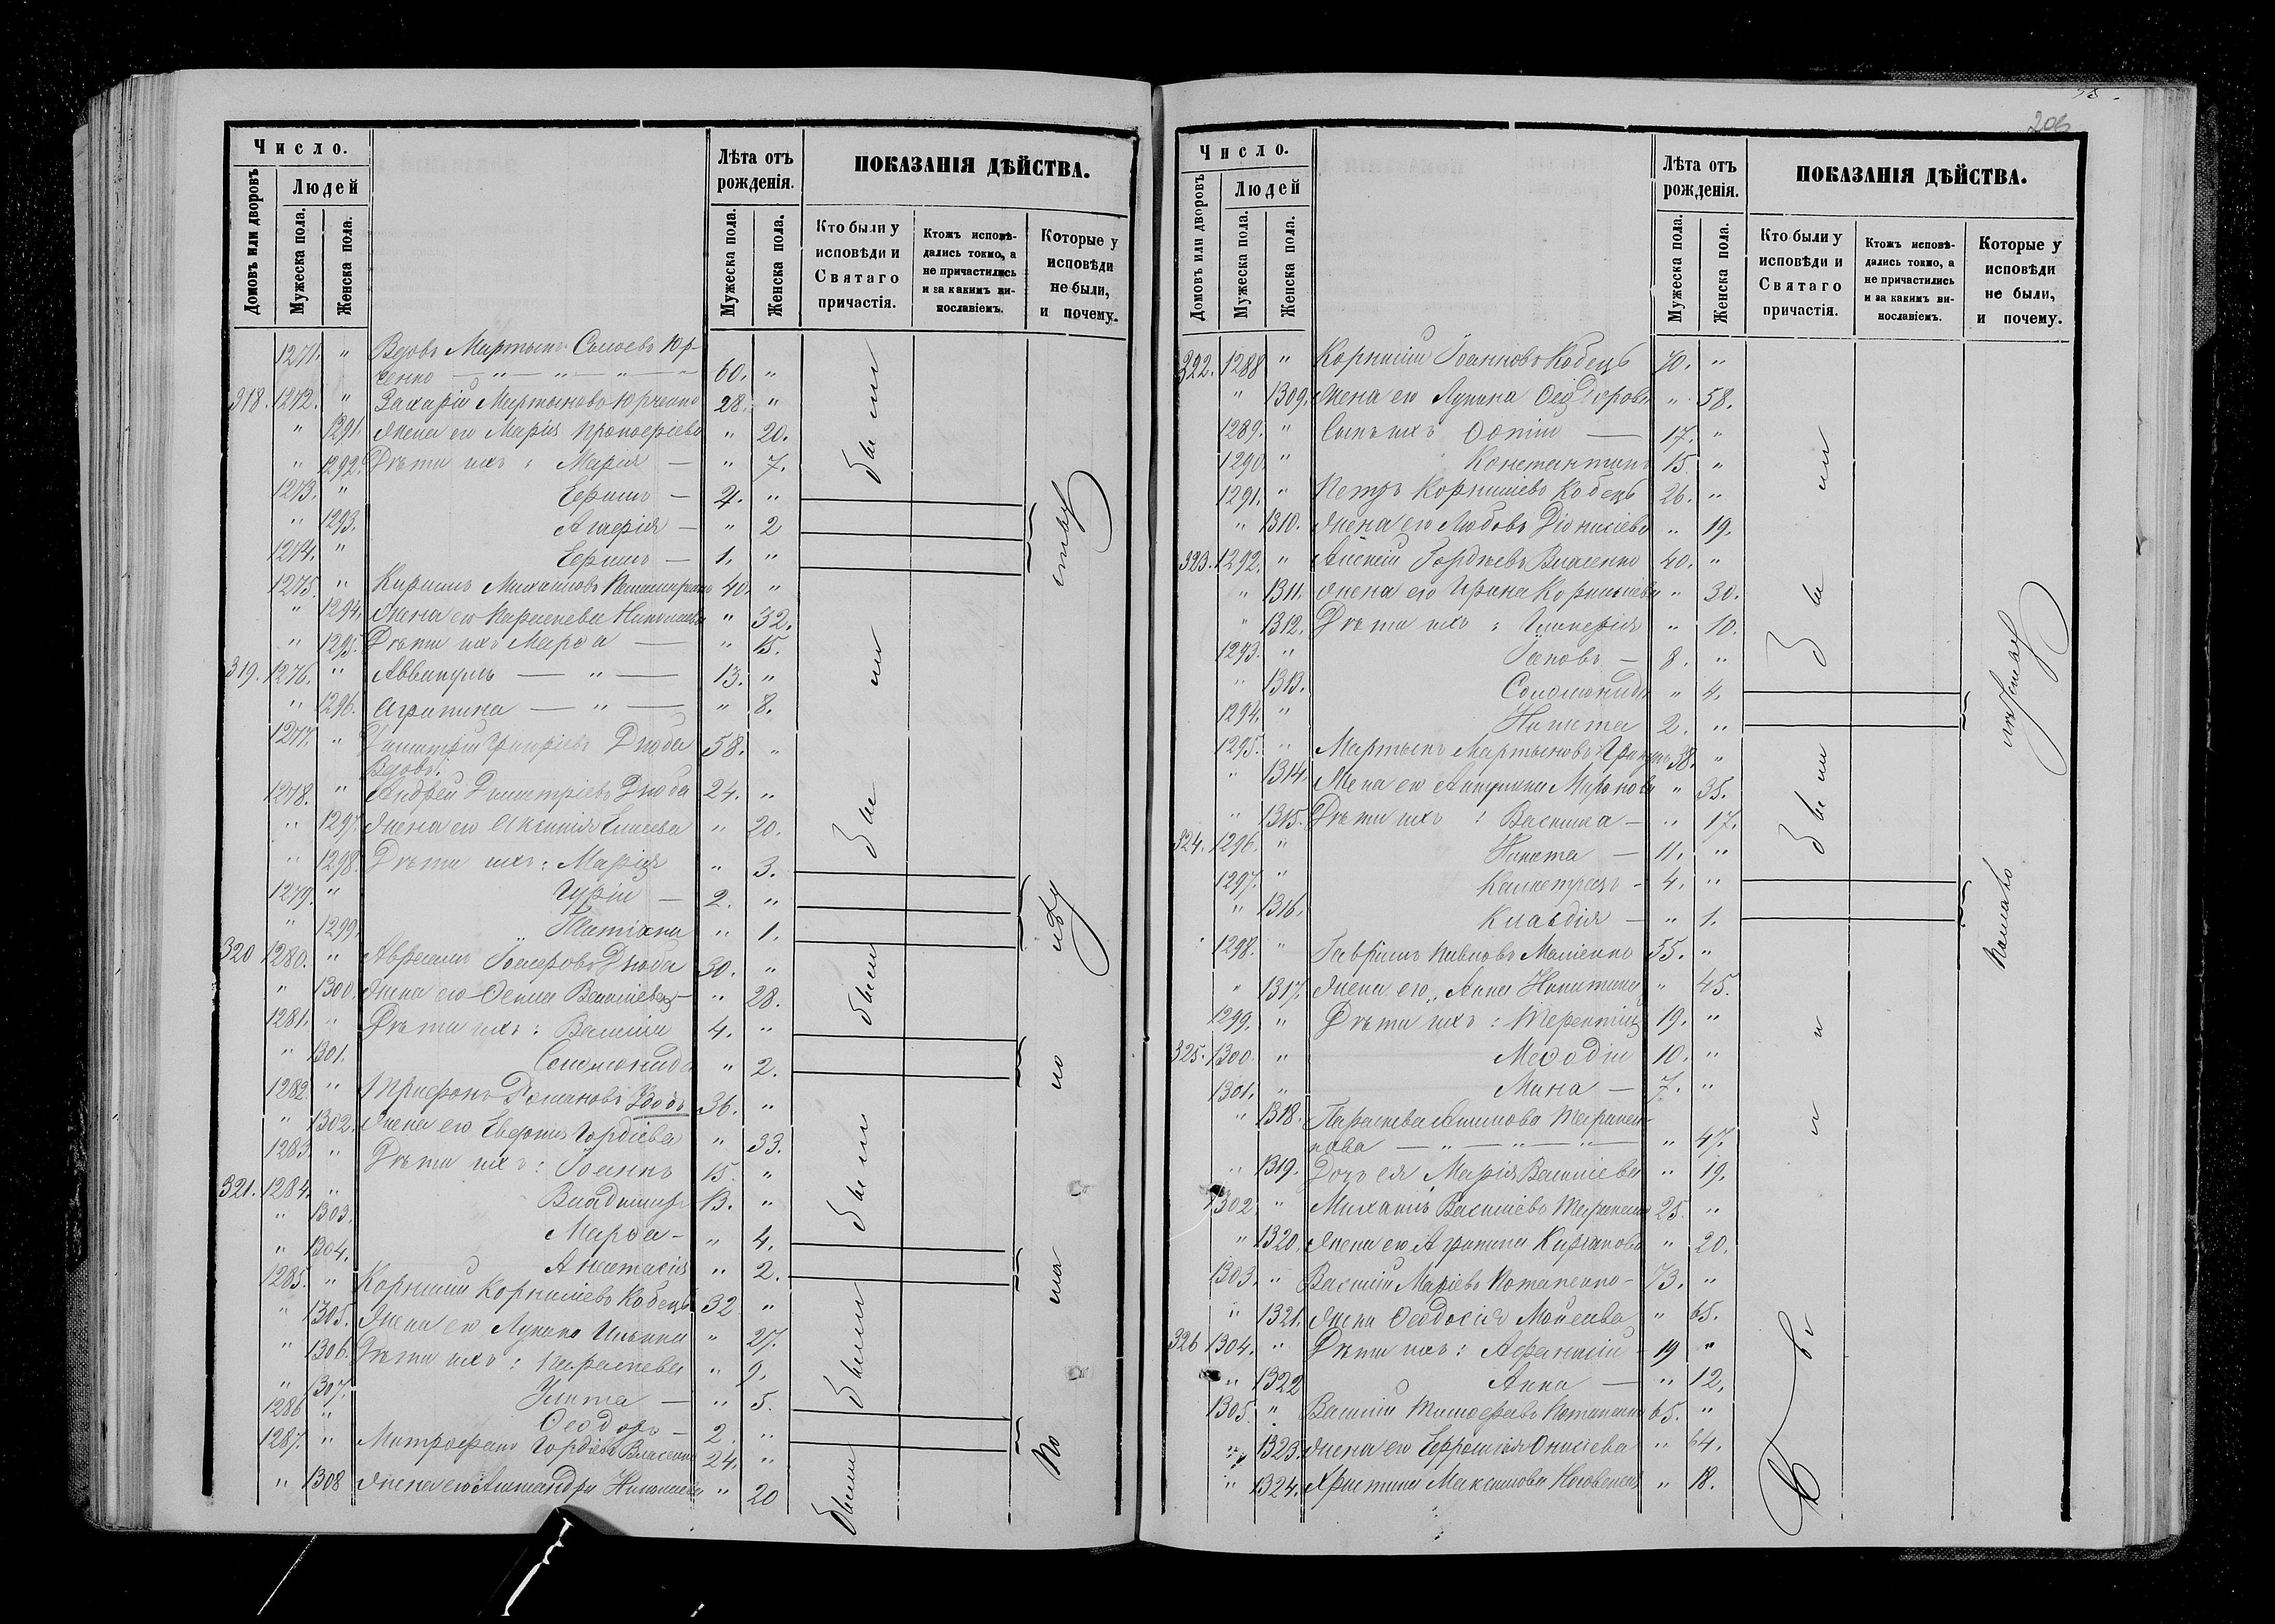 Число.
Домовъ или дворовъ
Людей
Мужеска пола.
Женска пола.
Лѣта отъ рожденія.
Мужеска пола.
Женска пола.
ПОКАЗАНІЯ ДѢЙСТВА.
Кто были у исповѣди и Святаго причастія.
Ктожъ исповѣ-дались токмо, а не причастились и за какимъ ви-нославіемъ.
Которые у исповѣди не были, и почему.
1271. " Вдовъ Мартынъ Юр-
ченко — " — " — " — 60. "
318. 1272. " Захарій Мартыновъ Юрченко 28. "
" 1291. Жена его Марія Прокофіева " 20.
" 1292. Дѣти ихъ: Марія — " 7.
1273. " Ефимъ — 4. "
" 1293. — " 2
1274. " Ефимъ — 1. "
1275. " Кириллъ Михаиловъ 40. "
" 1294. Жена его Параскева Николаева " 32.
" 1295. Дѣти ихъ Марѳа — " 15.
319. 1276. " Аввакумъ — " — 13. "
" 1296. Агрипина — " — " 8.
1277. " Димитрій Дзюба 58. "
Вдовъ.
1278. " Андрей Димитріевъ Дзюба 24. "
" 1297. Жена его Ксенія " 20.
" 1298. Дѣти ихъ: Марія " 3.
1279. " Гурій — 2. "
" 1299. Татіана " 1.
320 1280. " Авраамъ Дзюба 30. "
" 1300. Жена его Ѳекла Василіева " 28.
1281. " Дѣти ихъ: Василій 4. "
" 1301. Соломонида " 2.
1282. " Трифонъ Романовъ 36. "
" 1302. Жена его Евдокія Гордіева " 33.
1283. " Дѣти ихъ: Іоаннъ 15. "
321. 1284. " Владимиръ 13. "
" 1303. Марѳа — " 4.
" 1304. Анастасія " 2.
1285. " Корнилій Корниліевъ Кобецъ 32 "
" 1305. Жена его Лукина Ильина " 27.
" 1306. Дѣти ихъ: Параскева " 9.
" 1307. Улита — " 5.
1286 " Ѳеодоръ — 2. "
1287. " Митрофанъ Гордіевъ Власенко 24. "
" 1308 Жена его Александра Николаева " 20
были
были
были
были
были
были
По малолѣтству
206
Число.
Домовъ или дворовъ
Людей
Мужеска пола.
Женска пола.
Лѣта отъ рожденія.
Мужеска пола.
Женска пола.
ПОКАЗАНІЯ ДѢЙСТВА.
Кто были у исповѣди и Святаго причастія.
Ктожъ исповѣ-дались токмо, а не причастились и за какимъ ви-нославіемъ.
Которые у исповѣди не были, и почему.
322. 1288 " Корнилій Іоанновъ Кобецъ 70. "
" 1309. Жена его Лукина Ѳеодорова " 58.
1289. " Сынъ ихъ — 17. "
1290. " Константинъ 15. "
1291. " Петръ Корниліевъ Кобецъ 26. "
" 1310. Жена его Любовь Діонисіева " 19.
323. 1292. " Гордѣевъ Власенко 40. "
" 1311. Жена его Ирина Корниліева " 30.
" 1312. Дѣти ихъ: Гликерія " 10.
1293. " Іаковъ — 8. "
" 1313. Соломонида " 4.
1294. " Никита 2. "
1295. " Мартынъ Мартыновъ 38. "
" 1314. Жена его Миронова " 35.
" 1315. Дѣти ихъ: Василиса — " 17.
324. 1296. " Никита — 11. "
1297. " Калистратъ — 4. "
" 1316. Клавдія — " 1.
1298. " Гавріилъ Павловъ 55. "
" 1317. Жена его Анна Никитина " 45.
1299. " Дѣти ихъ: Терентій 19. "
325. 1300. " Меѳодій 10. "
1301. " Мина — 7. "
" 1318. Параскева
— " — " — " 47.
" 1319. Дочь ея Марія Василіева " 19.
1302. " Михаилъ Василіевъ 25. "
" 1320. Жена его Агрипина " 20.
1303. " Василій Потапенко — 73. "
" 1321. Жена Ѳеодосія Моисеева " 65.
326 1304. " Дѣти ихъ: Аѳанасій 19 "
" 1322 Анна — " 12.
1305. " Василій Тимоѳеевъ Потапенко 65. "
" 1323. Жена его Ефросинія Онисіева " 64.
" 1324. Христина Максимова " 18.
были
были
Были
По малолѣтству